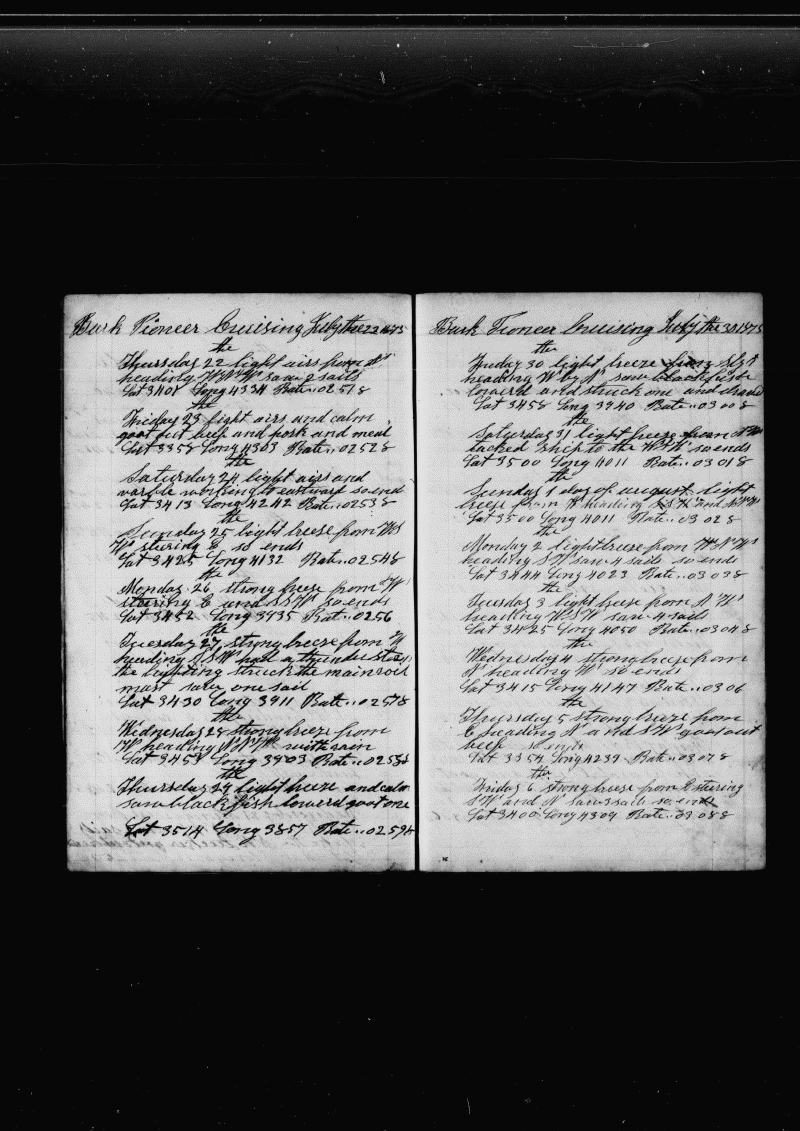 Bark Pioneer Cruising July the 22 1875
the
Thursday 22 light airs from N
heading W N W saw 2 sails
Lat 3401 Long 4334 Rate .. 02518
the
Friday 23 light airs and calm
goot out beef and pork and meal
Lat 3358 Long 4303 Rate .. 02528
the
Saturday 24 light airs and
varble working to eastward so end
Lat 3413 Long 4242 Rate .. 02538
the
Sunday 25 light breese from WS
W stering E so ends
Lat 3425 Long 4132 Rate .. 02548
the
Monday 26 strong breese from W
stering E and S S W so ends
Lat 3452 Long 3935 Rate .. 0256
the
Tuesday 27 strong breeze from W
heading S S W had a thunder storm
the lighting struck the main roil
mast saw one sail
Lat 3430 Long 3911 Rate .. 02578
the
Wednesday 28 strong breeze from
W heading N N W with rain
Lat 3458 Long 3903 Rate .. 02588
the
Thursday 29 light breeze and calm
saw black fish lowerd goot one
Lat 3514 Long 3857 Rate .. 02598
Bark Pioneer Cruising July the 30 1875
the
Friday 30 light breeze from
heading W by N saw blackfish
lowerd and struck one and
Lat 3458 Long 3940 Rate .. 03008
the
Saturday 31 light breeze from
tacked ship to the so ends
Lat 3500 Long 4011 Rate .. 03018
the
Sunday 1 day of august light
breese from W heading
Lat 3500 Long 4011 Rate .. 03028
the
Monday 2 light breese from W N W
heading S W saw 4 sails so ends
Lat 3444 Long 4023 Rate .. 03038
the
Tuesday 3 light breese from N W
heading W S W saw 4 sails
Lat 3425 Long 4050 Rate .. 03048
the
Wednesday 4 strong breese from
N heading W so ends
Lat 3415 Long 4147 Rate .. 0306
the
Thursday 5 strong breese from
E heading N and S W goot out
beef so ends
Lat 3354 Long 4239 Rate .. 03078
the
Friday 6 strong breese from E stering
S W and N saw 3 sails so ends
Lat 3400 Long 4309 Rate .. 03088